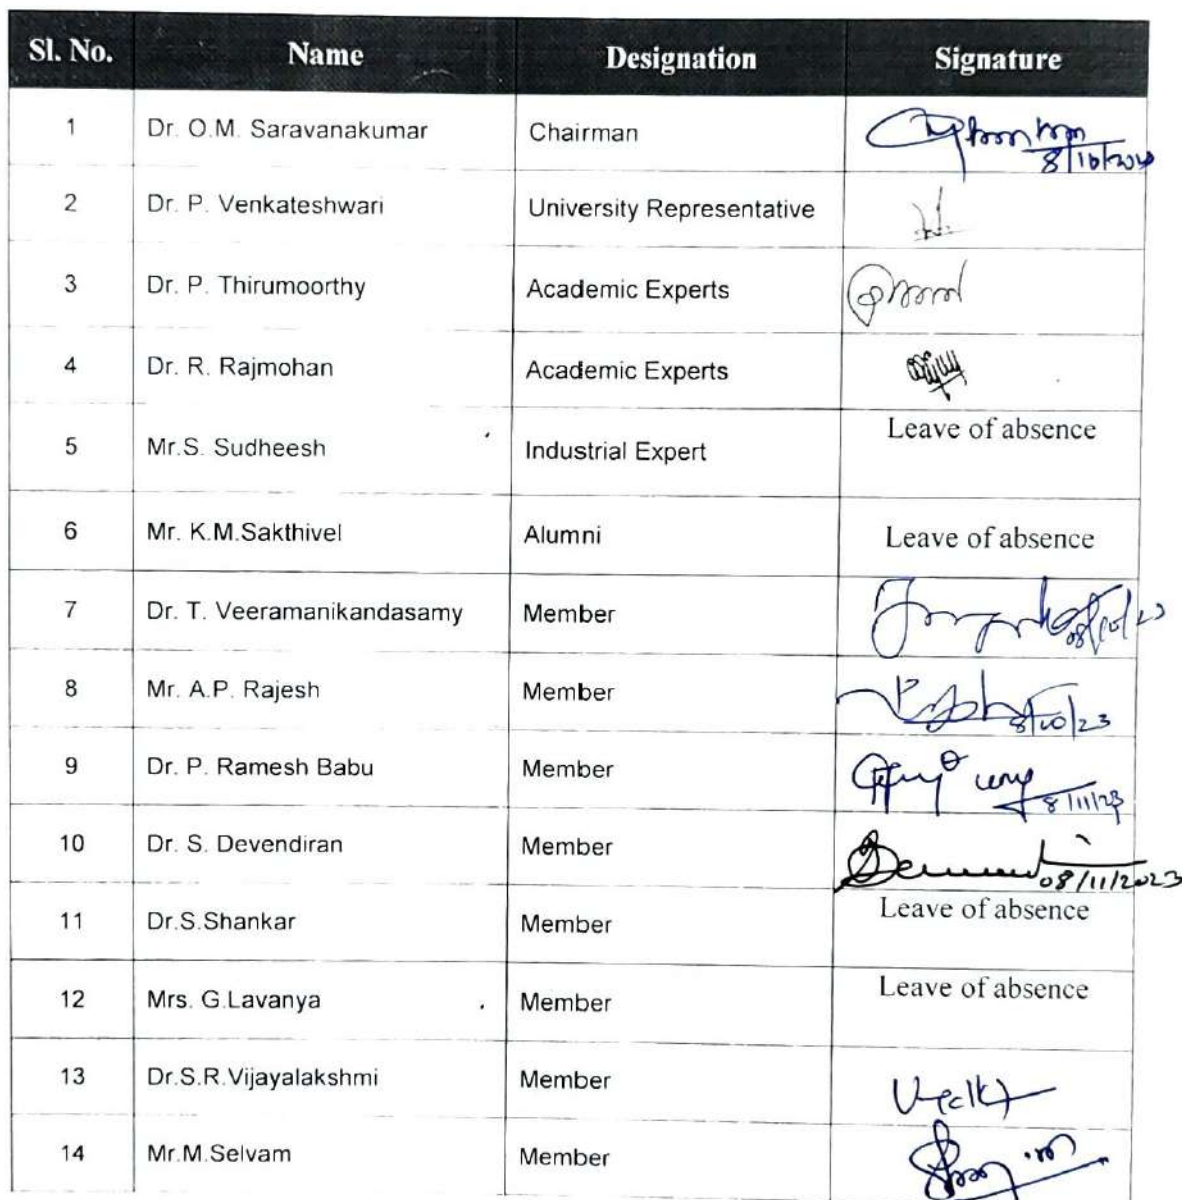 Sl. No. Name Designation Signature
1 Dr. O.M. Saravanakumar Chairman
8/10/2023
2 Dr. P. Venkateshwari University Representative
3 Dr. P. Thirumoorthy Academic Experts
4 Dr. R. Rajmohan Academic Experts
5 Mr.S. Sudheesh Industrial Expert Leave of absence
6 Mr. K.M.Sakthivel Alumni Leave of absence
7 Dr. T. Veeramanikandasamy Member 08/10/23
8 Mr. A.P. Rajesh Member 8/10/23
9 Dr. P. Ramesh Babu Member 8/11/23
10 Dr. S. Devendiran Member 08/11/2023
11 Dr.S.Shankar Member Leave of absence
12 Mrs. G.Lavanya Member Leave of absence
13 Dr.S.R.Vijayalakshmi Member
14 Mr.M.Selvam Member